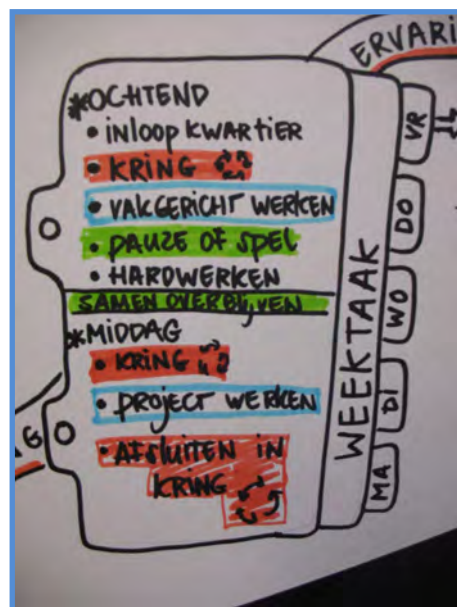 ERVARI
*OCHTEND
• INLOOP KWARTIER
• KRING
• VAKGERICHT WERKEN
• PAUZE OF SPEL
• HARDWERKEN
SAMEN OVERBLIJVEN
*MIDDAG
• KRING
• PROJECT WERKEN
• AFSLUITEN IN
KRING
WEEKTAAK
VR
DO
WO
DI
MA